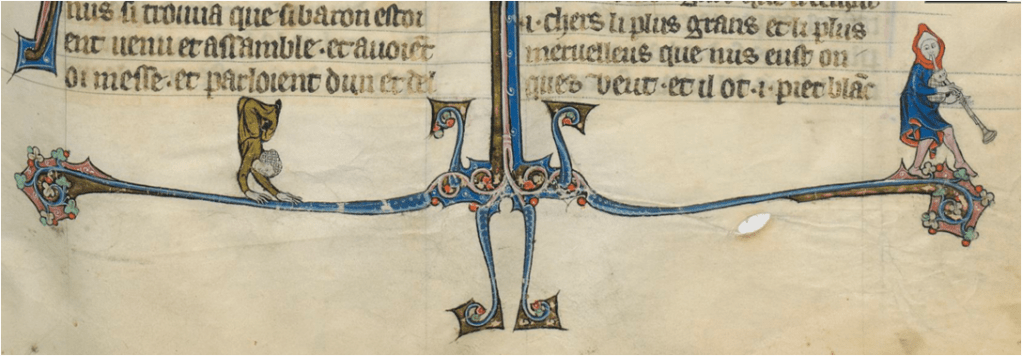 nuis si trouua que si baron estoi
ent uenu et assamble · et auoiēt
oi messe · et parloient dun et del
·i· chers li plus grans et li plus
meruelleus que nus eust on
ques veut · et il ot ·i· piet blāc